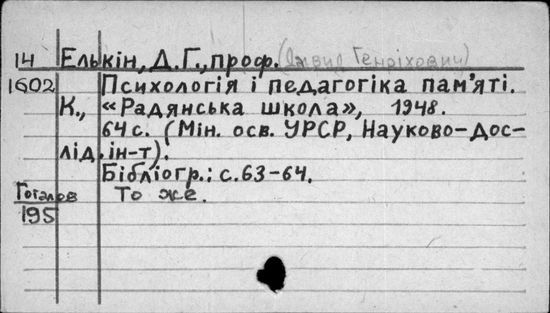 14 Елькін, Д. Г., проф. (Давид Генріхович)
1602 Психологія і педагогіка пам'яті.
К., «Радянська школа», 1948.
64 с. (Мін. осв. УРСР, Науково-дос-
лід. ін-т).
Бібліогр.: с. 63-64.
То же.
195